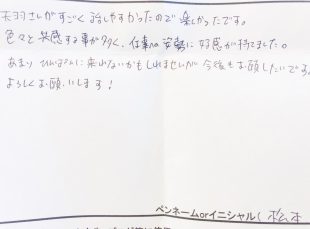 天羽さんがすごく話しやすかったので楽しかったです。
色々と共感する事が多く、仕事の姿勢に好感が持てました。
あまりひんぱんに来れないかもしれませんが今後もお願したいです。
よろしくお願いします！
ペンネームorイニシャル( 松本